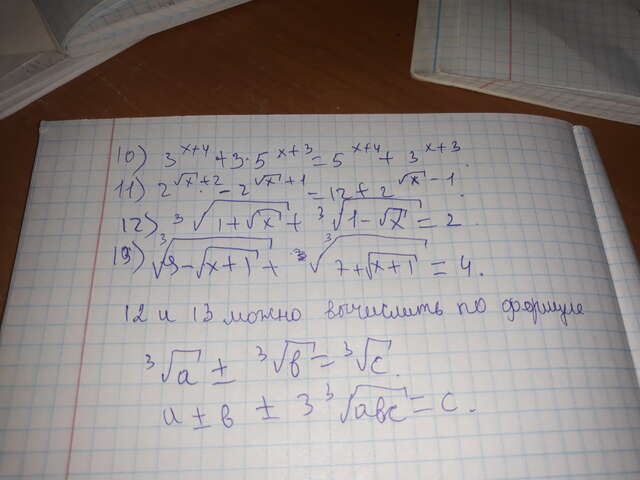 10) 3^{x+4} + 3·5^{x+3} = 5^{x+4} + 3^{x+3}.
11) 2^{√x+2} - 2^{√x+1} = 12 + 2^{√x-1}.
12) ³√(1+√x) + ³√(1-√x) = 2.
13) ³√(9-√(x+1)) + ³√(7+√(x+1)) = 4.
12 и 13 можно вычислить по формуле
³√a ± ³√b = ³√c.
a ± b ± 3 ³√(abc) = c.